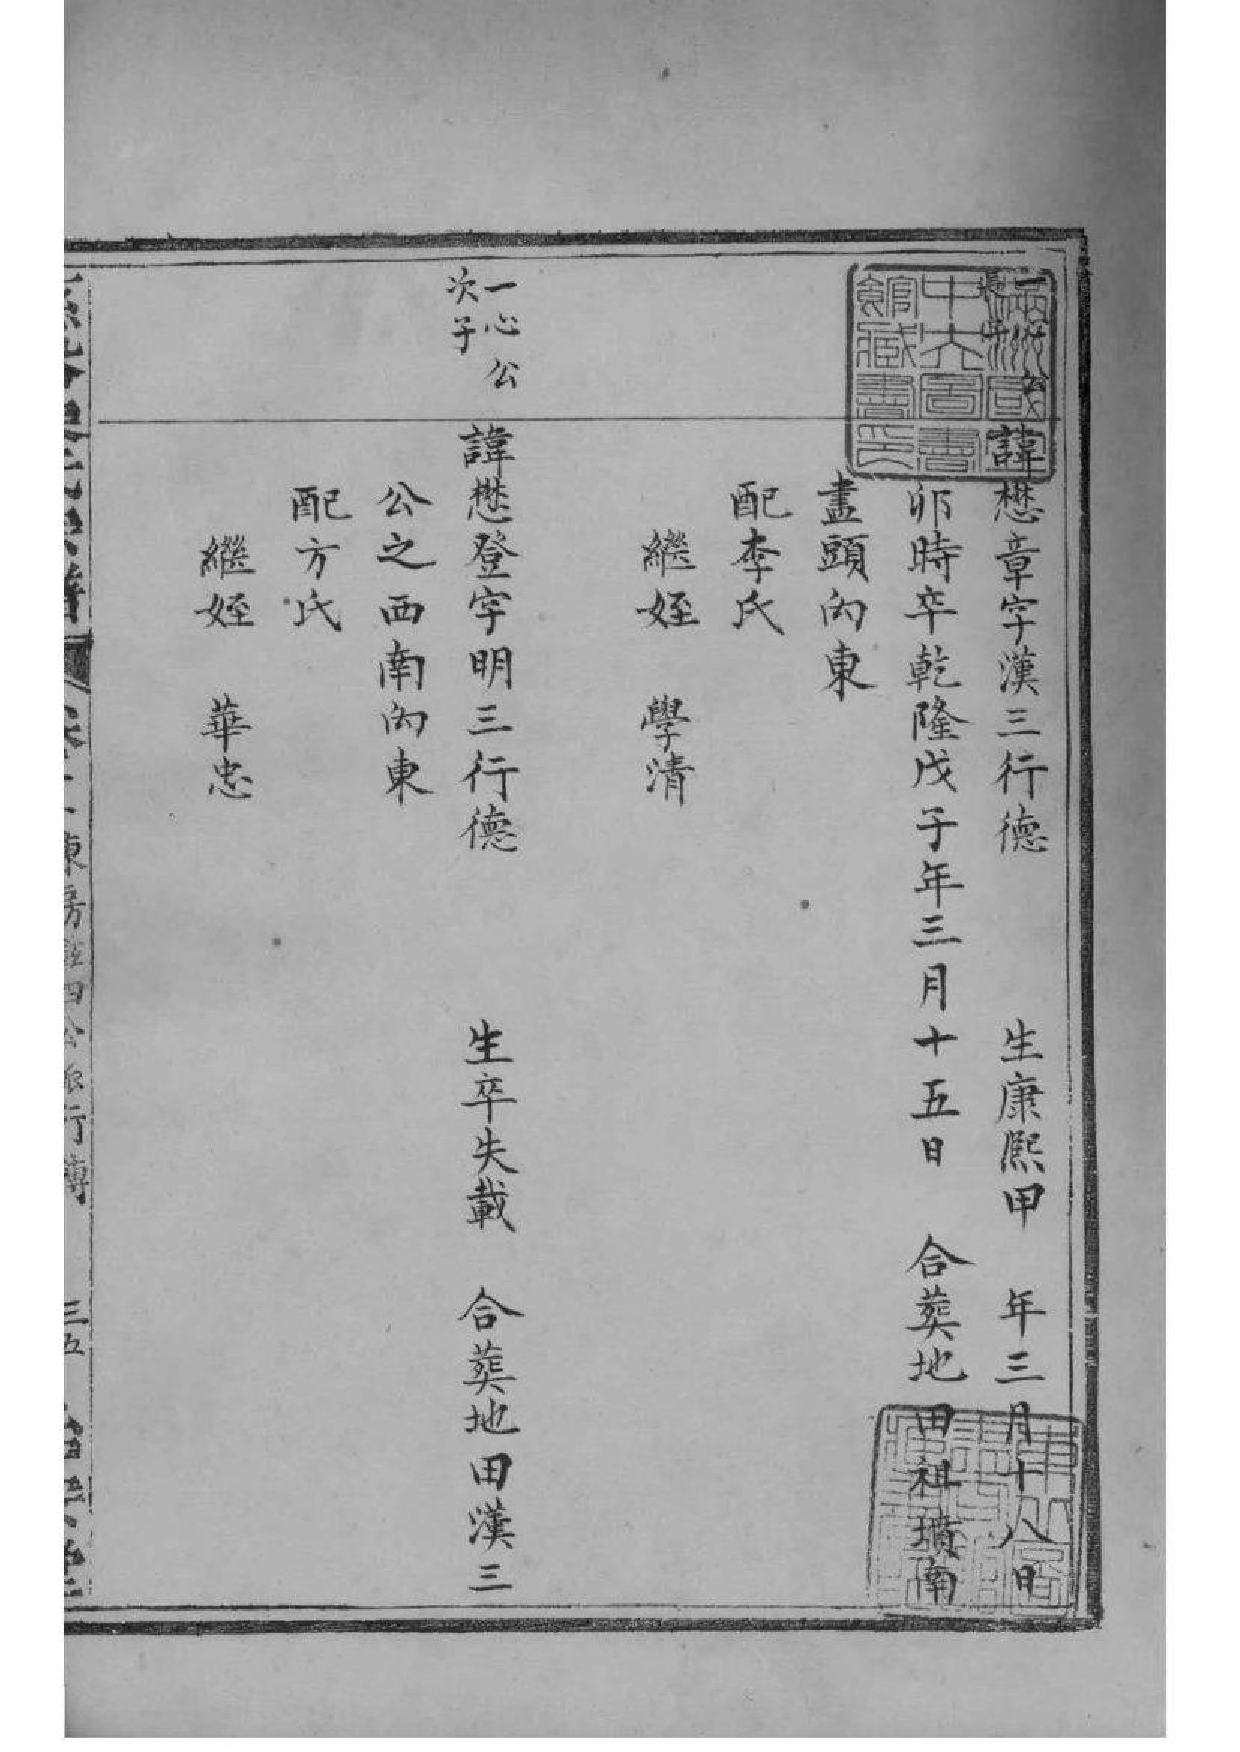 一心公
長子
諱懋章字漢三行德 生康熙甲 年三月十八日
卯時卒乾隆戊子年三月十五日 合葬地田祖墳南
盡頭向東
配李氏
繼姪 學清
一心公
次子
諱懋登字明三行德 生卒失載 合葬地田漢三
公之西南向東
配方氏
繼姪 華忠
東房註四公派行傳 三五